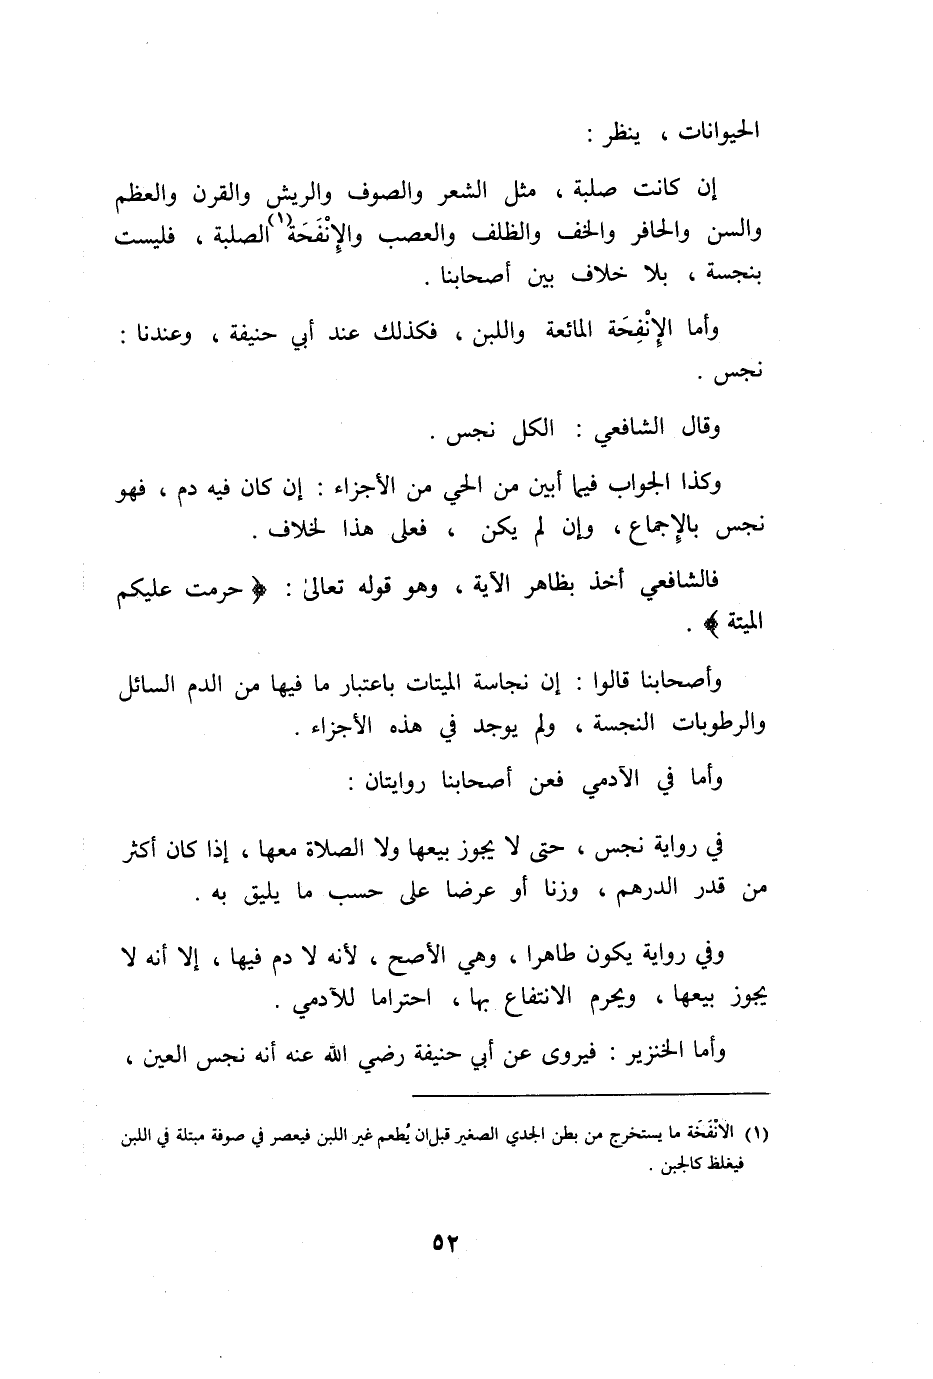 الحيوانات ، ينظر :
إن كانت صلبة ، مثل الشعر والصوف والريش والقرن والعظم
والسن والحافر والخف والظلف والعصب والإنْفَحَة(١) الصلبة ، فليست
بنجسة ، بلا خلاف بين أصحابنا .
وأما الإنْفِحَة المائعة واللبن ، فكذلك عند أبي حنيفة ، وعندنا :
نجس .
وقال الشافعي : الكل نجس .
وكذا الجواب فيما أبين من الحي من الأجزاء : إن كان فيه دم ، فهو
نجس بالإجماع ، وإن لم يكن ، فعلى هذا لخلاف .
فالشافعي أخذ بظاهر الآية ، وهو قوله تعالىٰ : ﴿ حرمت عليكم
الميتة ﴾ .
وأصحابنا قالوا : إن نجاسة الميتات باعتبار ما فيها من الدم السائل
والرطوبات النجسة ، ولم يوجد في هذه الأجزاء .
وأما في الآدمي فعن أصحابنا روايتان :
في رواية نجس ، حتى لا يجوز بيعها ولا الصلاة معها ، إذا كان أكثر
من قدر الدرهم ، وزنا أو عرضا على حسب ما يليق به .
وفي رواية يكون طاهرا ، وهي الأصح ، لأنه لا دم فيها ، إلا أنه لا
يجوز بيعها ، ويحرم الانتفاع بها ، احتراما للآدمي .
وأما الخنزير : فيروى عن أبي حنيفة رضي الله عنه أنه نجس العين ،
(١) الانْفَحَة ما يستخرج من بطن الجدي الصغير قبل ان يُطعم غير اللبن فيعصر في صوفة مبتلة في اللبن
فيغلظ كالجبن .
٥٢